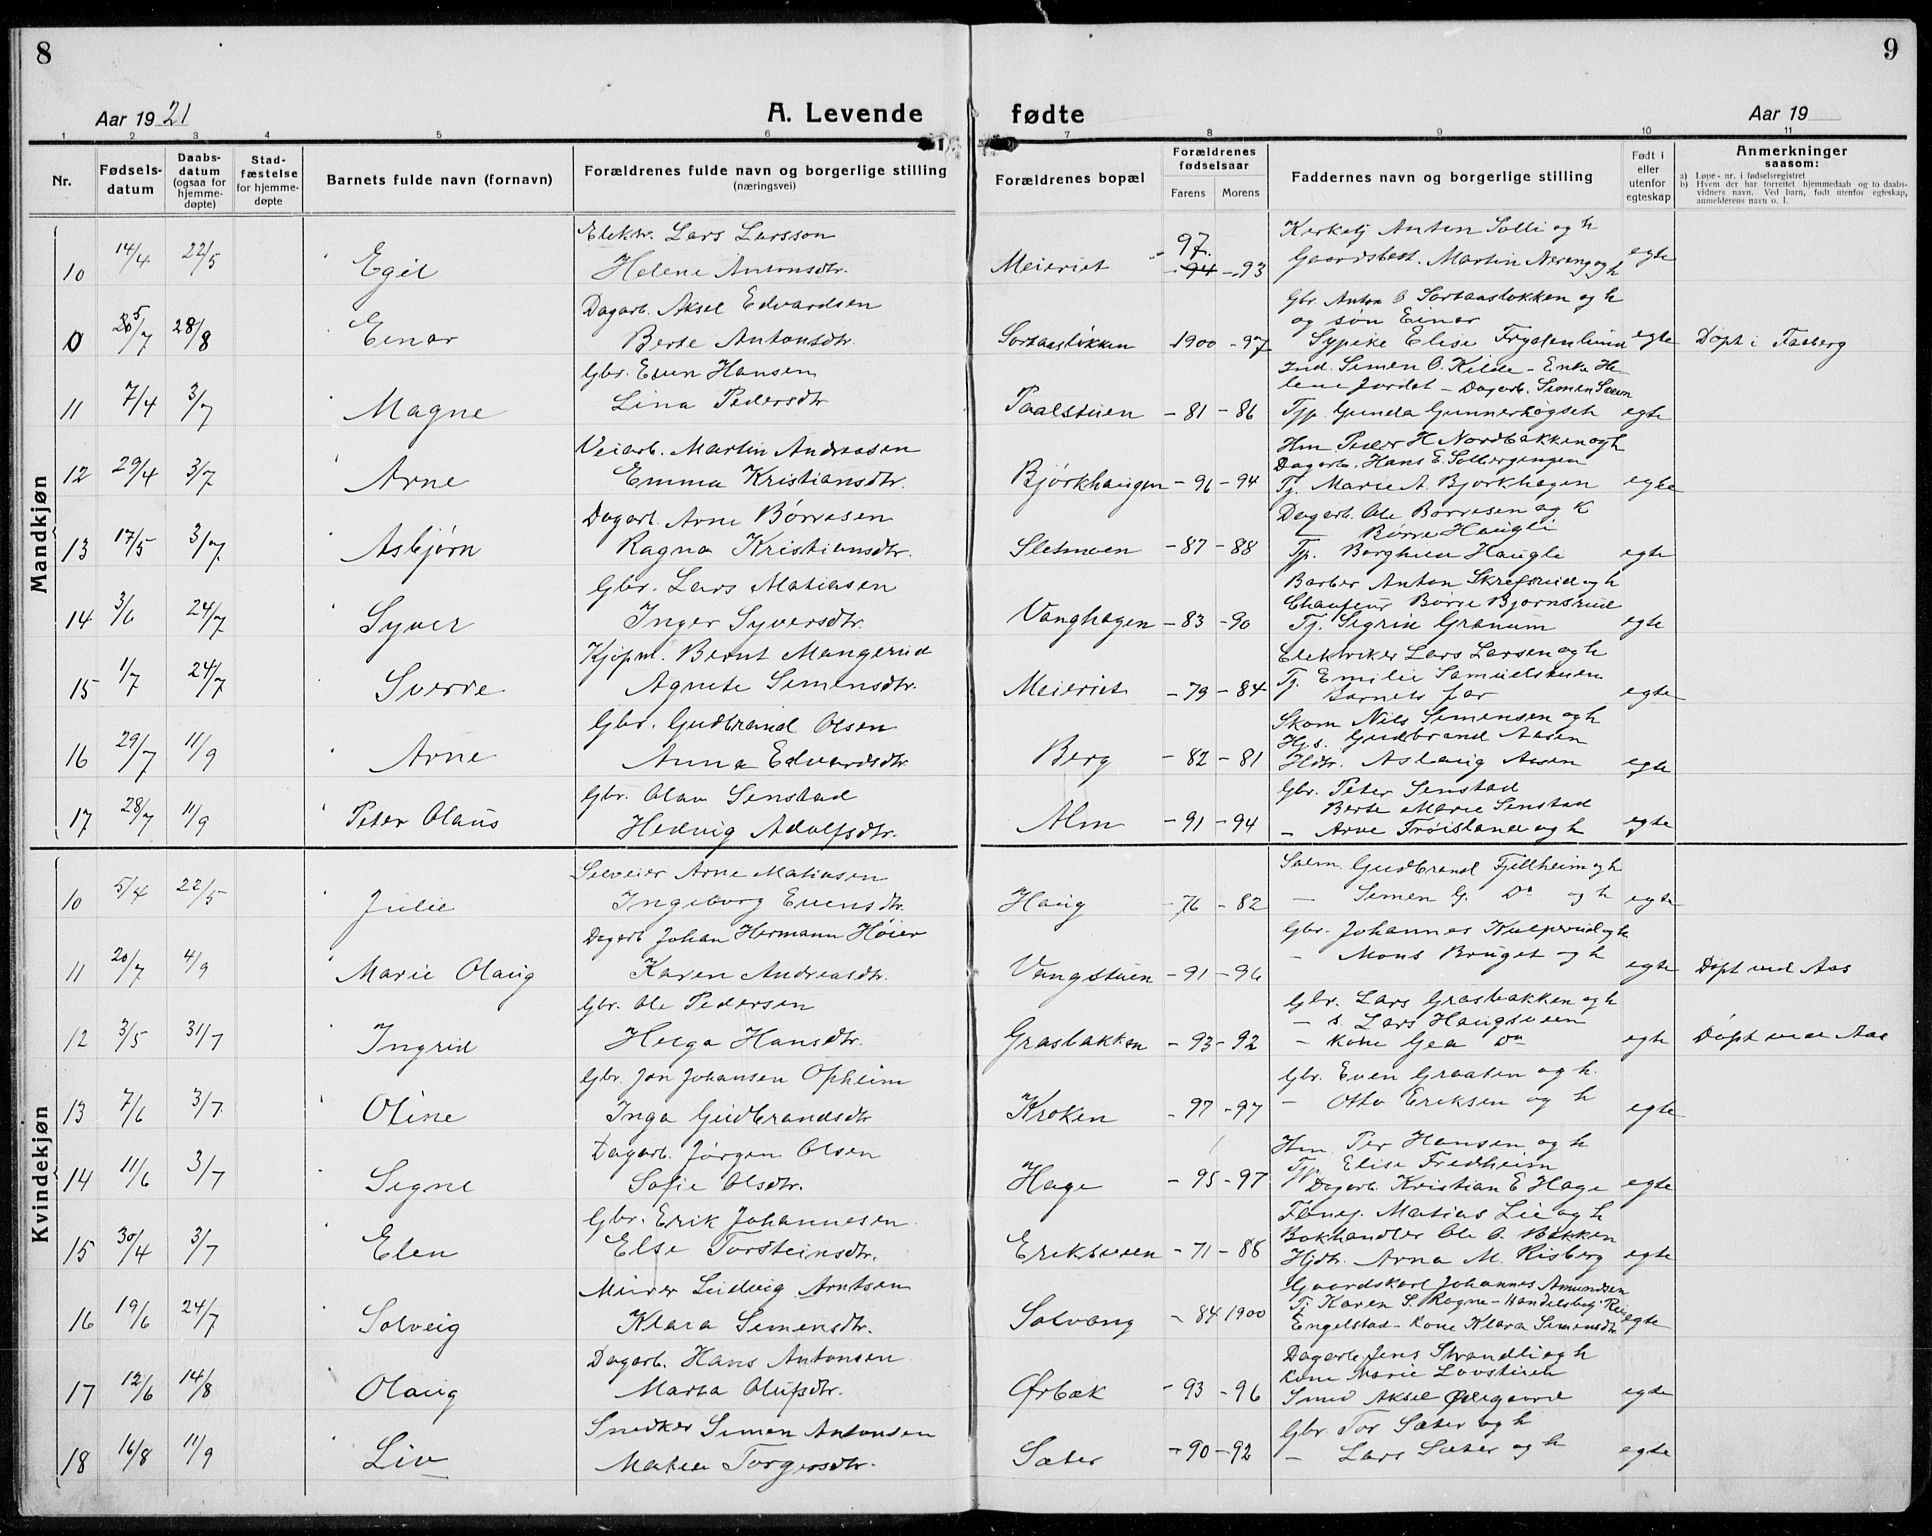 8
9
Aar 1921
A. Levende
fødte
Aar 19
1 2 3 4 5 6 7 8 9 10 11
Nr.
Fødsels-
datum
Daabs-
datum
(ogsaa for
hjemme-
døpte)
Stad-
fæstelse
for hjemme-
døpte
Barnets fulde navn (fornavn)
Forældrenes fulde navn og borgerlige stilling
(næringsvei)
Forældrenes bopæl
Forældrenes
fødselsaar
Farens Morens
Faddernes navn og borgerlige stilling
Født i
eller
utenfor
egteskap
Anmerkninger
saasom:
a) Løpe-nr. i fødselsregistret
b) Hvem der har forrettet hjemmedaab og to daabs-
vidners navn. Ved barn, født utenfor egteskap,
anmelderens navn o. l.
Mandkjøn
Elektr. Lars Larsson
Kirketj Anton Solli og h
10 14/4 22/5 Egil Helene Antonsdtr. Meieriet 97 - 94 - 93 Gaardsbest. Martin Nereng og h egte
Dagarb. Aksel Edvardsen
Gbr Anton O Sortaasløkken og h
og søn Einar
0 25/7 28/8 Einar Berte Antonsdtr. Sortaasløkken 1900 - 97 Sypike Elise Frydenlund egte Døpt i Faaberg
Gbr. Even Hansen
Ind. Simen O. Kilde - Enke He
lene Jordet - Dagarb. Simen
11 7/4 3/7 Magne Lina Pedersdtr Paalstuen - 81 - 86 Tjp. Gunda Gunnerhøgset egte
Veiarb. Martin Andreasen
Hm Peder H Nordbakken og h
Dagarb. Hans E. Solbergengen
12 29/4 3/7 Arne Emma Kristiansdtr. Bjørkhaugen - 96 - 94 Tj. Marie A. Bjørkhagen egte
Dagarb. Arne Børresen
Dagarb. Ole Børresen og k
— Børre Haugli
13 17/5 3/7 Asbjørn Ragna Kristiansdtr. Sletmoen - 87 - 88 Tjp. Borghild Haugli egte
Gbr. Lars Matiasen
Barber Anton Skrefsrud og h
Chaufeur Børre Bjørnsrud
14 3/6 24/7 Syver Inger Syversdtr. Vanghagen - 83 - 90 Tj. Sigrid Granum egte
Kjøpm. Bernt Mangerud
Elektriker Lars Larsen og h
Tj. Emilie Samuelstuen
15 1/7 24/7 Sverre Agnete Simensdtr. Meieriet - 79 - 84 Barnets far egte
Gbr. Gudbrand Olsen
Skom Nils Simensen og h
Hj.s. Gudbrand Aasen
16 29/7 11/9 Arne Anna Edvardsdtr. Berg - 82 - 81 Hdtr. Aslaug Aasen egte
Gbr. Olav Senstad
Gbr. Peter Senstad
Berte Marie Senstad
17 28/7 11/9 Peter Olaus Hedvig Adolfsdtr. Alm - 91 - 94 — Arve Trøisland og h egte
Kvindekjøn
Arne Matiasen
Salm. Gudbrand Fjellheim og h
10 5/4 22/5 Julie Ingeborg Evensdtr. Haug - 76 - 82 — Simen G. Do og h egte
Dagarb Johan Hermann Høier
Gbr. Johannes Kulperud og h
11 20/7 4/9 Marie Olaug Karen Andreasdtr. Vangstuen - 91 - 96 — Mons Bruget og h egte Døpt ved Aas
Gbr. Ole Pedersen
Gbr. Lars Grasbakken og h
— s. Lars Haugsveen
12 3/5 31/7 Ingrid Helga Hansdtr. Grasbakken - 93 - 92 — kone Gea Do egte Døpt ved Aas
Gbr. Jon Johansen Opheim
Gbr. Even Graaten og h.
13 7/6 3/7 Oline Inga Gudbrandsdtr Kroken - 97 - 97 — Otto Eriksen og h egte
Dagarb. Jørgen Olsen
Hm. Per Hansen og h
Tjp. Elise Fredheim
14 11/6 3/7 Signe Sofie Olsdtr. Hage - 95 - 97 Dagarb. Kristian E Hage egte
Gbr. Erik Johannesen
Matias Lie og h
Bokhandler Ole O. Bakken
15 30/4 3/7 Elen Else Torsteinsdtr. Eriksveen - 71 - 88 Hjdtr. Arna M. Risberg egte
Murer Ludvig Arntsen
Gaardskarl Johannes Amundsen
Tj Karen S. Rogne - Handelsbetj
16 19/6 24/7 Solveig Klara Simensdtr. Solvang - 84 1900 Engelstad - kone Klara Simensdtr. egte
Dagarb. Hans Antonsen
Dagarb. Jens Strandli og h
kone Marie Lovstuen
17 12/6 14/8 Olaug Marta Olufsdtr. Ørbæk - 93 - 96 Smed Aksel Ødegaard egte
Snedker Simen Antonsen
Gbr Tor Sæter og h
18 16/8 11/9 Liv Torgersdtr. Sæter - 90 - 92 — Lars Sæter og h egte